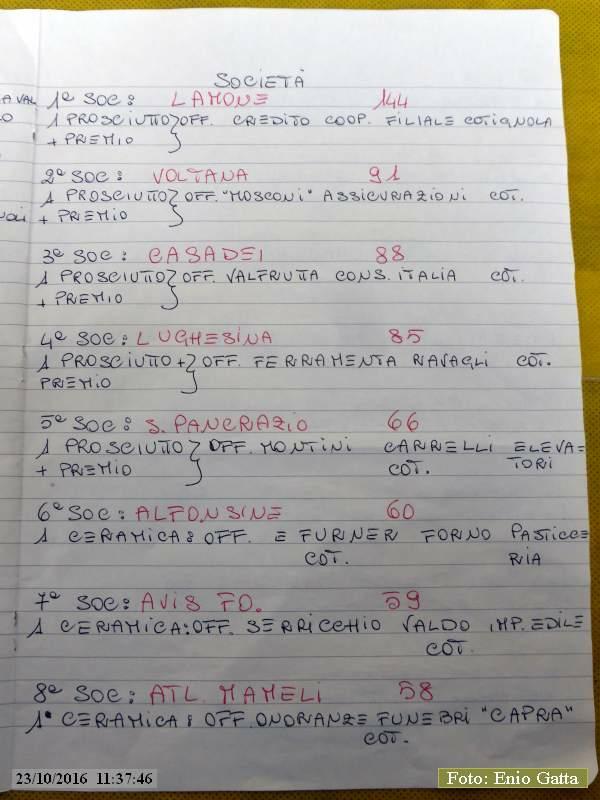 SOCIETÀ
A VAL
1ª SOC: LAMONE 144
1 PROSCIUTTO } OFF. CREDITO COOP. FILIALE COTIGNOLA
+ PREMIO
2ª SOC: VOLTANA 91
1 PROSCIUTTO } OFF. "MOSCONI" ASSICURAZIONI COT.
+ PREMIO
3ª SOC: CASADEI 88
1 PROSCIUTTO } OFF. VALFRUTTA CONS. ITALIA COT.
+ PREMIO
4ª SOC: LUGHESINA 85
1 PROSCIUTTO + } OFF. FERRAMENTA RAVAGLI COT.
PREMIO
5ª SOC: S. PANCRAZIO 66
1 PROSCIUTTO } OFF. MONTINI CARRELLI ELEVA=
+ PREMIO COT. TORI
6ª SOC: ALFONSINE 60
1 CERAMICA: OFF. E FURNER FORNO PASTICCE
COT. RIA
7ª SOC: AVIS FO. 59
1 CERAMICA: OFF. SERRICCHIO VALDO IMP. EDILE
COT.
8ª SOC: ATL. MAMELI 58
1 CERAMICA: OFF. ONORANZE FUNEBRI "CAPRA"
COT.
23/10/2016 11:37:46
Foto: Enio Gatta